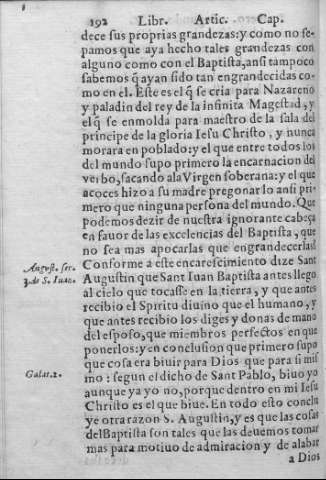 192 Libr. Artic. Cap.
dece sus proprias grandezas: y como no se-
pamos que aya hecho tales grandezas con
alguno como con el Baptista, ansi tampoco
sabemos q̃ ayan sido tan engrandecidas co-
mo en el. Este es el q̃ se cria para Nazareno
y paladin del rey de la infinita Magestad, y
el q̃ se enmolda para maestro de la sala del
principe de la gloria Iesu Christo, y nunca
morara en poblado: y el que entre todos los
del mundo supo primero la encarnacion del
verbo, sacando ala Virgen soberana: y el que
acoces hizo a su madre pregonarlo ansi pri-
mero que ninguna persona del mundo. Que
podemos dezir de nuestra ignorante cabeça
en fauor de las excelencias del Baptista, que
no sea mas apocarlas que engrandecerlas?
Conforme a este encarescimiento dize Sant
August. ser.
3. de S. Iuan.
Augustin que Sant Iuan Baptista antes llego
al cielo que tocasse en la tierra, y que antes
recibio el Spiritu diuino que el humano, y
que antes recibio los diges y donas de mano
del esposo, que miembros perfectos en que
ponerlos: y en conclusion que primero supo
que cosa era biuir para Dios que para si mis
Galat. 2.
mo: segun el dicho de Sant Pablo, biuo yo
aunque ya yo no, porque dentro en mi Iesu
Christo es el que biue. En todo esto conclu
ye otra razon S. Augustin, y es que las cosas
del Baptista son tales que las deuemos tomar
mas para motiuo de admiracion y de alabar
a Dios